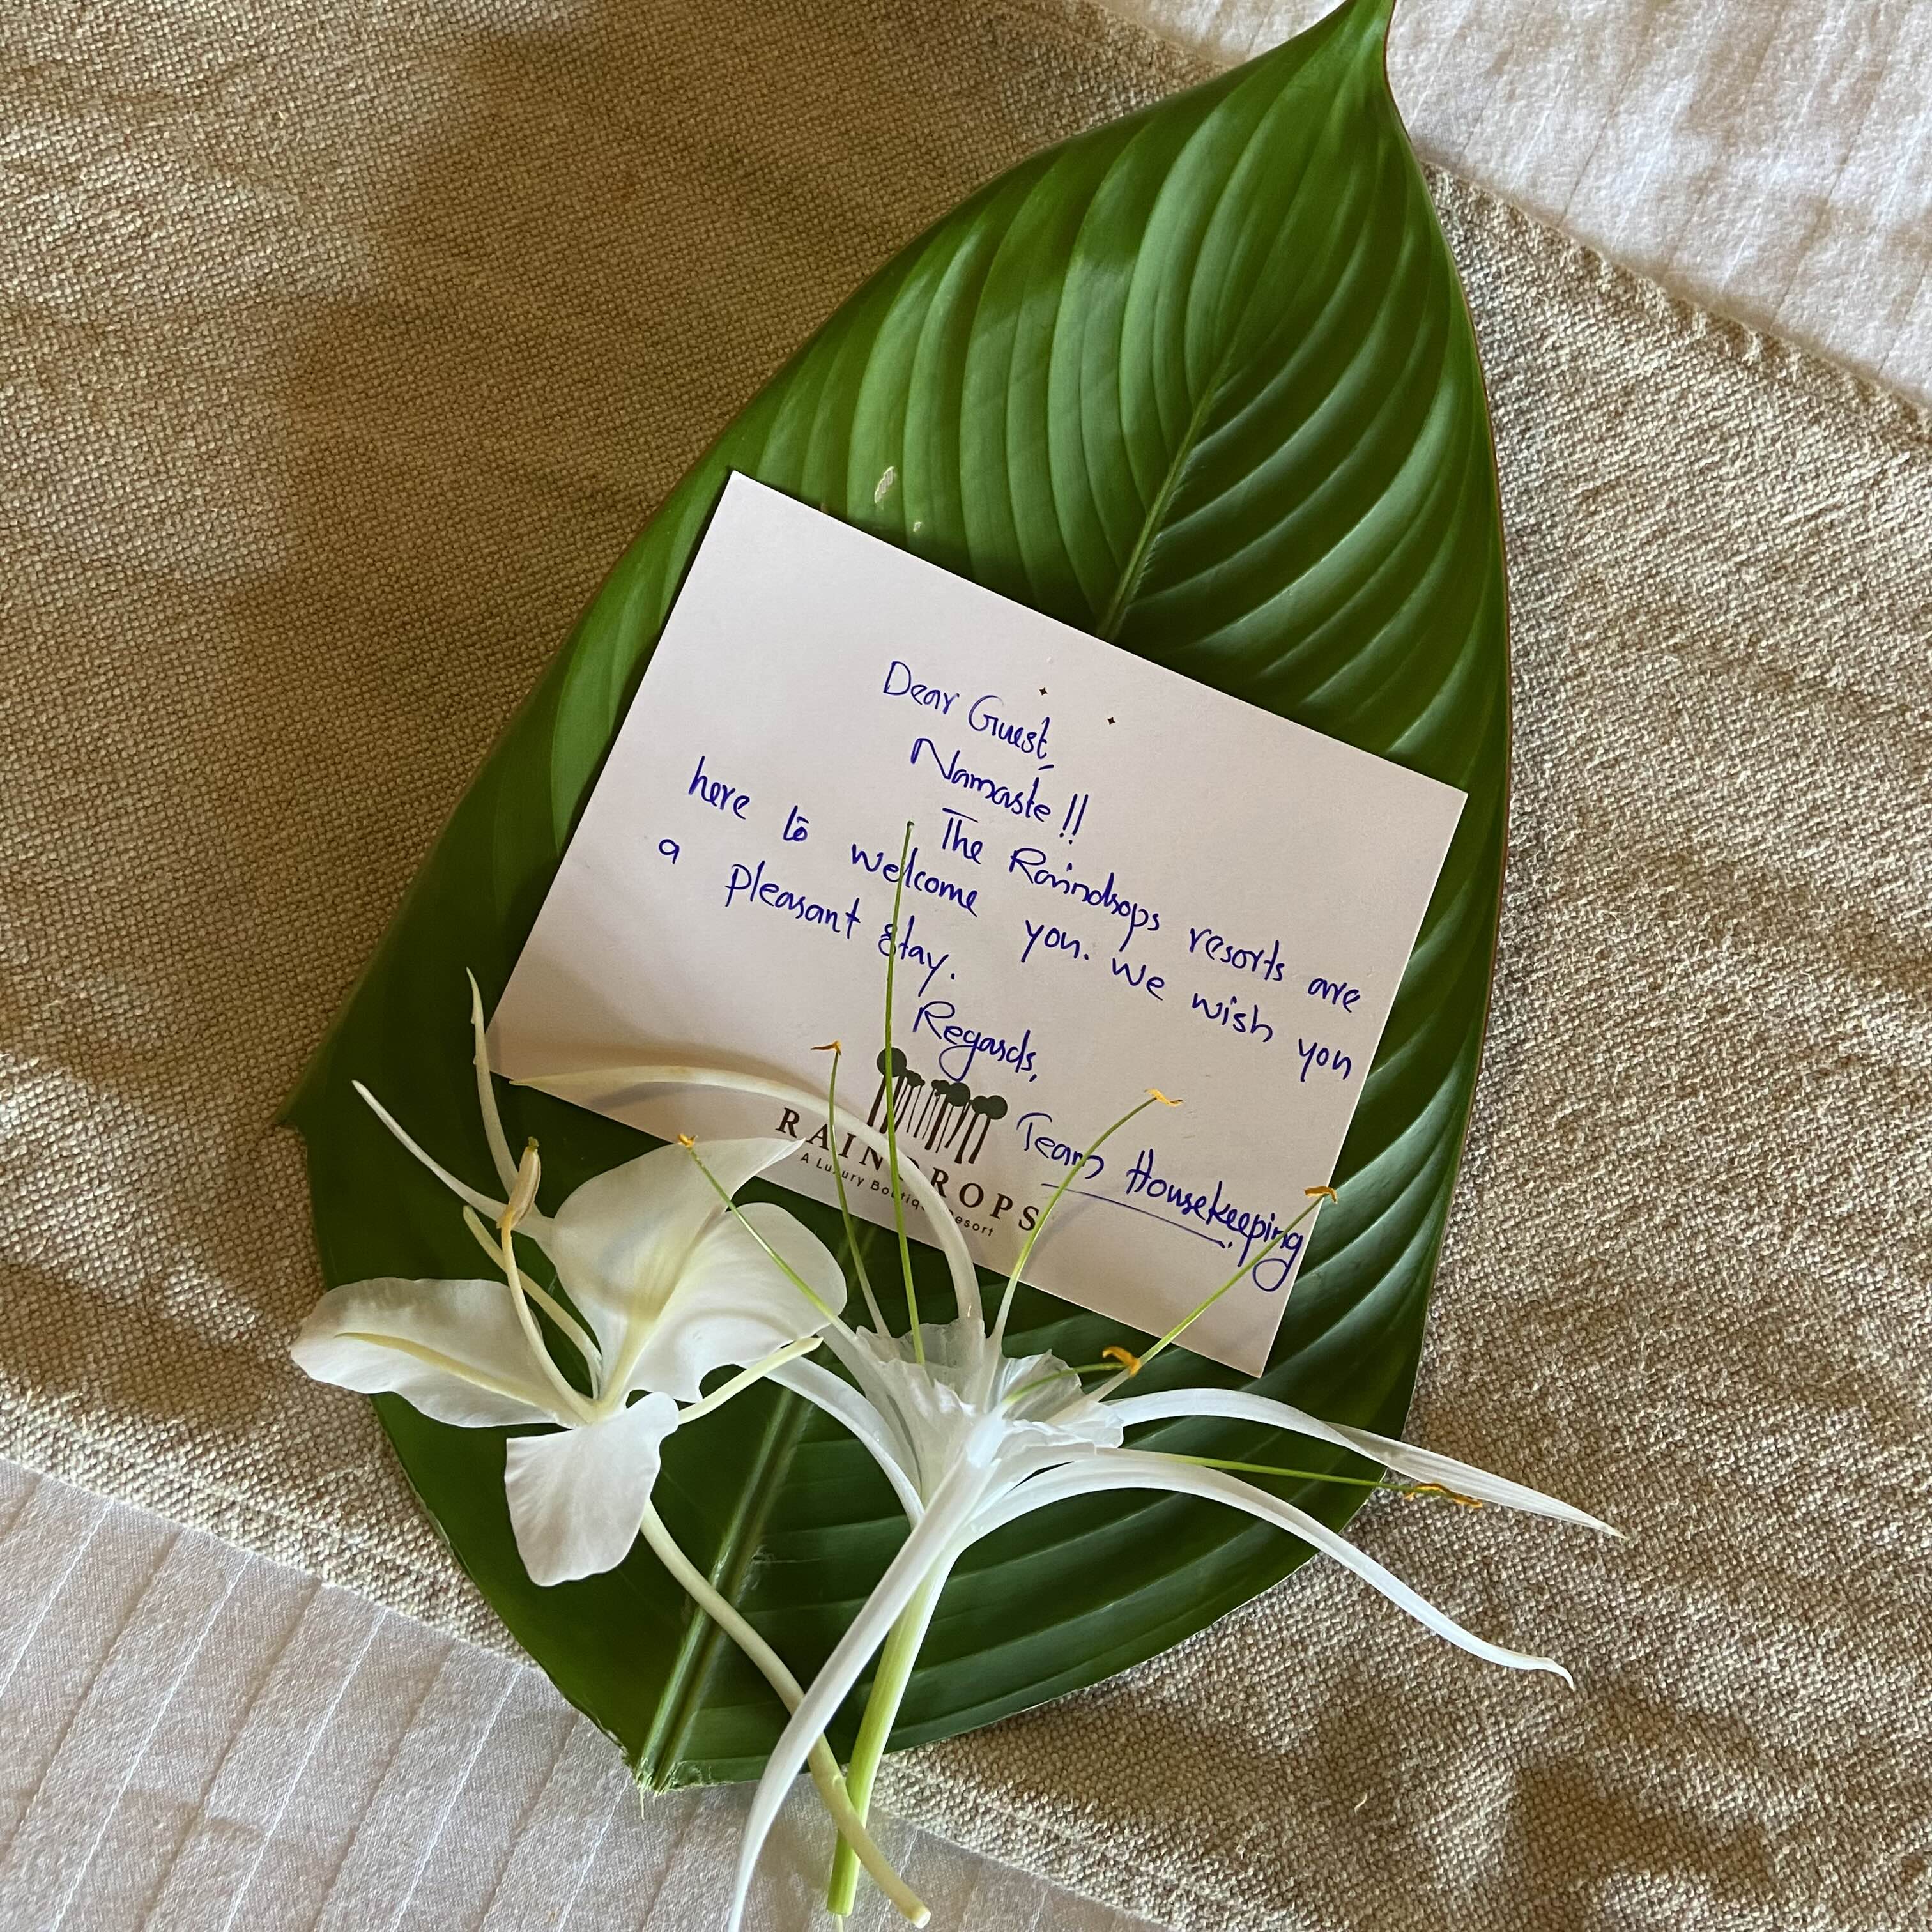 Dear Guest,
Namaste !!
The Raindrops resorts are
here to welcome you. We wish you
a pleasant stay.
Regards,
Team Housekeeping
RAINDROPS
A Luxury Boutique Resort